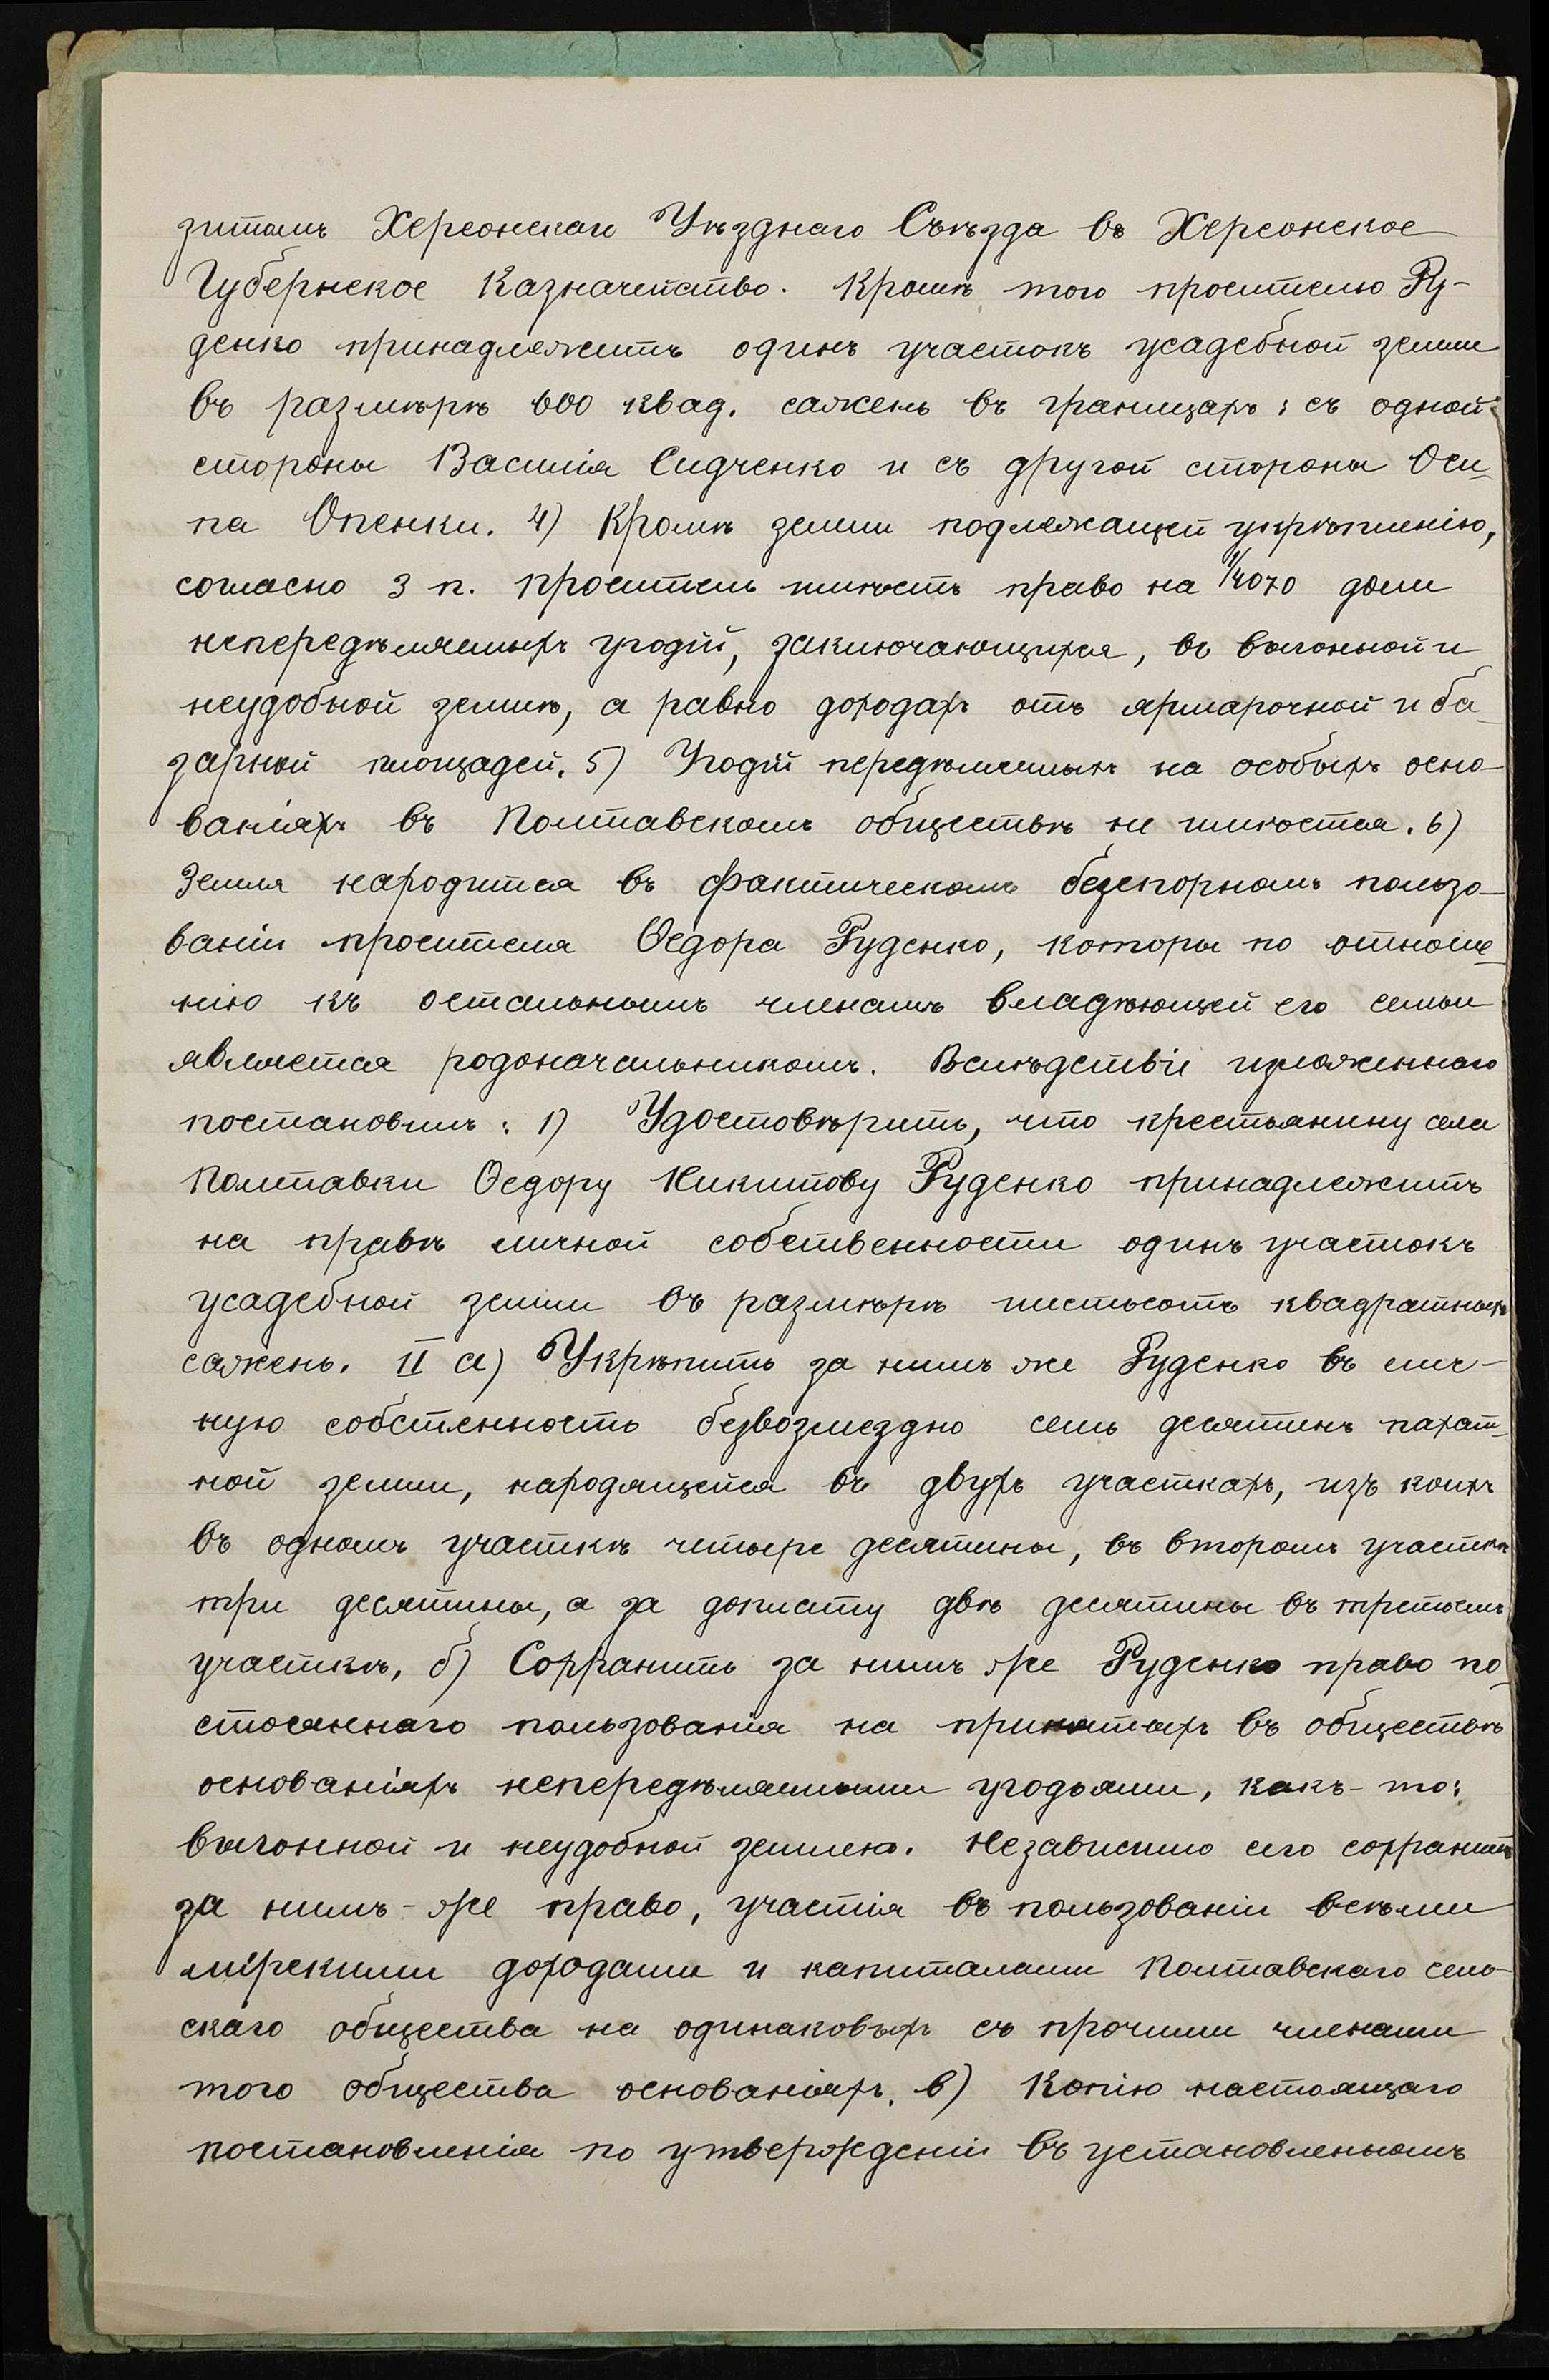 зитомъ Херсонскаго Уѣзднаго Съѣзда въ Херсонское
Губернское Казначейство. Кромѣ того просителю Ру-
денко принадлежитъ одинъ участокъ усадебной земли
въ размѣрѣ 600 квад. сажень въ границахъ: съ одной
стороны Василія Сидченко и съ другой стороны Оси-
па Опенки. 4) Кромѣ земли подлежащей укрѣпленію,
согласно 3 п. проситель имѣетъ право на 1/4070 доли
непередѣляемыхъ угодій, заключающихся, въ выгонной и
неудобной землѣ, а равно доходахъ отъ ярмарочной и ба-
зарной площадей. 5) Угодій передѣлемыхъ на особыхъ осно-
ваніяхъ въ Полтавскомъ обществѣ не имѣется. 6)
Земля находится въ фактическомъ безспорномъ пользо-
ваніи просителя Ѳедора Руденко, которы по отноше-
нію къ остальнымъ членамъ владѣющей его семьи
является родоначальникомъ. Вслѣдствіе изложеннаго
постановилъ: 1) Удостовѣрить, что крестьянину села
Полтавки Ѳедору Никитову Руденко принадлежитъ
на правѣ личной собственности одинъ участокъ
усадебной земли въ размѣрѣ шестьсотъ квадратныхъ
сажень. II а) Укрѣпить за нимъ же Руденко въ лич-
ную собственность безвозмездно семь десятинъ пахат-
ной земли, находящейся въ двухъ участкахъ, изъ коихъ
въ одномъ участкѣ четыре десятины, въ второмъ участкѣ
три десятины, а за доплату двѣ десятины въ третьемъ
участкѣ, б) Сохранить за нимъ же Руденко право по-
стояннаго пользованія на принятыхъ въ обществѣ
основаніяхъ непередѣляемыми угодьями, какъ-то:
выгонной и неудобной землею. Независимо сего сохранить
за нимъ-же право, участія въ пользованіи всѣми
мірскими доходами и капиталами Полтавскаго сель-
скаго общества на одинаковыхъ съ прочими членами
того общества основаніяхъ. в) Копію настоящаго
постановленія по утвержденіи въ установленномъ